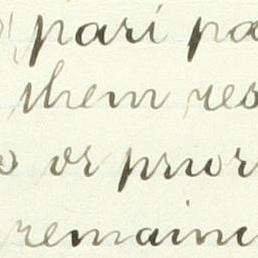 pari pa
them res
or prior
remaind